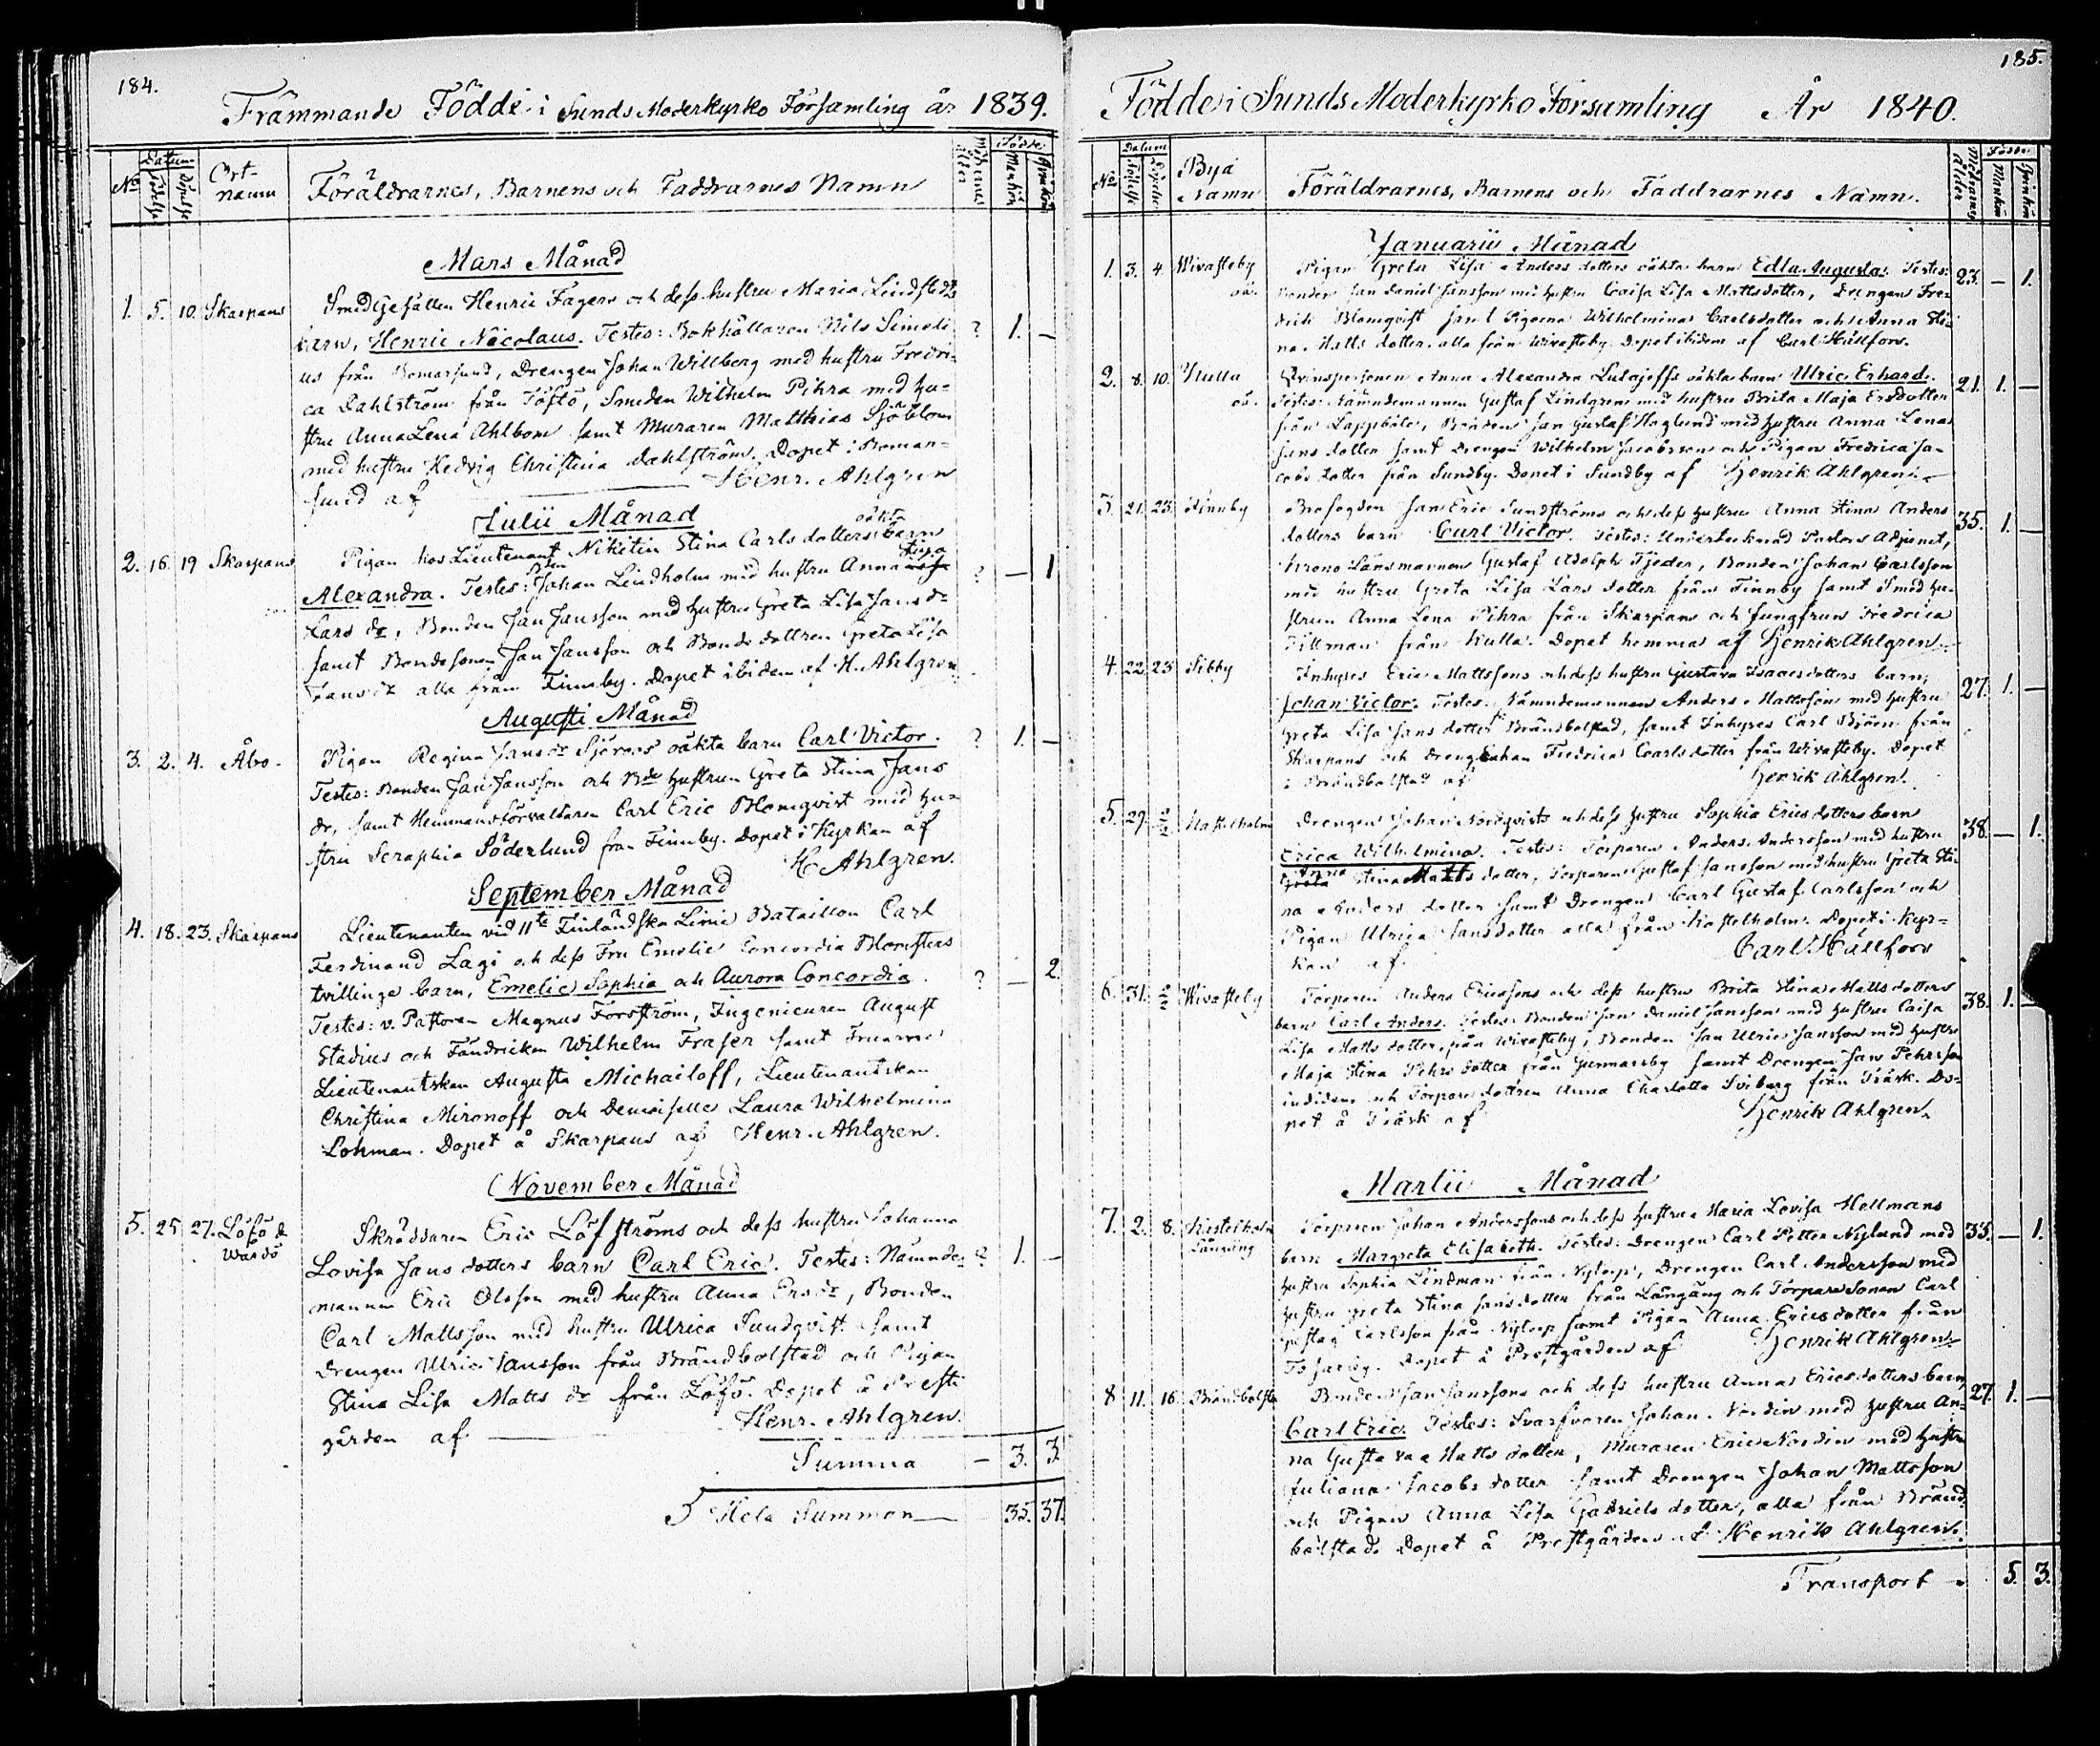 184.
Främmande Födde i Sunds Moderkyrko Församling år 1839.
No Datum Födelse Döpelse Ort-namn Föräldrarnes, Barnens och Faddrarnes Namn Mödrarnes ålder Födde Mankön Qvinkön
Mars Månad
1. 5. 10. Skarpans Smedgesällen Henric Fagers och dess hustru Maria Lindstedts
barn, Henric Nicolaus. Testes: Bokhållaren Nils Simeli ? 1. –
us från Bomarsund, Drengen Johan Willberg med hustru Fredri-
ca Dahlström från Töftö, Smeden Wilhelm Pihra med hu-
stru Anna Lena Ahlbom samt Muraren Matthias Sjöblom
med hustru Hedvig Christina Dahlström. Döpet i Bomar-
sund af Henr. Ahlgren
Julii Månad
2. 16. 19 Skarpans Pigan hos Lieutenant Nikitin Stina Carls dotters oäkta barn
Alexandra. Testes: Bn Johan Lindholm med hustru Anna Lisa ? – 1
Lars dr, Bonden Jan Jansson med hustru Greta Lisa Jans dr
samt Bondesonen Jan Jansson och Bonde dottren Greta Lisa
Jans dr alla från Finnby. Döpet ibidem af H. Ahlgren
Augusti Månad
3. 2. 4. Åbo. Pigan Regina Jans dr Sjöroos oäkta barn Carl Victor. ? 1. –
Testes: Bonden Jan Jansson och Bde hustrun Greta Stina Jans
dr, samt Hemmansförvaltaren Carl Eric Blomqvist med hu-
stru Seraphia Söderlund från Finnby. Döpet i Kyrkan af
H. Ahlgren
September Månad
4. 18. 23. Skarpans Lieutenanten vid 11te Finländska Linie Bataillon Carl
Ferdinand Lagi och dess Fru Emelie Concordia Blomsters
tvillinge barn, Emelie Sophia och Aurora Concordia. ? – 2.
Testes: v. Pastoren Magnus Forsström, Ingenieuren August
Stadius och Fändricken Wilhelm Fraser samt Fruarne
Lieutenantskan Augusta Michailoff, Lieutenantskan
Christina Mironoff och Demoiselle Laura Wilhelmina
Lohman. Döpet å Skarpans af Henr. Ahlgren.
November Månad
5. 25 27. Löfö & Wårdö Skräddaren Eric Löfströms och dess hustru Johanna
Lovisa Jans dotters barn Carl Eric. Testes: Nämnde- ? 1. –
mannen Eric Olsson med hustru Anna Ersdr, Bonden
Carl Mattsson med hustru Ulrica Sundqvist samt
Drengen Ulric Jansson från Brändbolstad och Pigan
Stina Lisa Matts dr från Löfö. Döpet å Prest-
gården af Henr. Ahlgren.
Summa – 3. 3.
Hela Summan 35. 37.
185.
Födde i Sunds Moderkyrko Församling År 1840.
No Datum Födelse Döpelse Bya Namn Föräldrarnes, Barnens och Faddrarnes Namn. Mödrarnes ålder Födde Mankön Qvinkön
Januarii Månad
1. 3. 4 Wivasteby oä. Pigan Greta Lisa Anders dotters oäkta barn Edla Augusta. Testes: 23. – 1.
Bonden Jan Daniel Jansson med hustru Caisa Lisa Mattsdotter, Drengen Fre-
drik Blomqvist samt Pigorna Wilhelmina Carlsdotter och Anna Sti-
na Matts dotter, alla från Wivasteby. Döpet ibidem af Carl Hällfors.
2. 8. 10. Kulla oä. Qvinspersonen Anna Alexandra oäkta barn Ulric Erhard. 21. 1. –
Testes: Nämndemannen Gustaf Lindgren med hustru Brita Maja Ersdotter
från Lappböle, Bonden Jan Gustaf Haglund med hustru Anna Lena
Jans dotter samt Drengen Wilhelm Jacobsson och Pigan Fredrica Ja-
cobs dotter från Sundby. Döpet i Sundby af Henrik Ahlgren.
3. 21. 25. Finnby Brofogden Jan Eric Sundströms och dess hustru Anna Stina Anders
dotters barn Carl Victor. Testes: Undertecknad Pastors Adjunct, 35. 1. –
Krono Länsmannen Gustaf Adolph Tjeder, Bonden Johan Carlsson
med hustru Greta Lisa Lars dotter från Finnby samt Smed hu-
strun Anna Lena Pihra från Skarpans och Jungfrun Fredrica
Tillman från Kulla. Döpet hemma af Henrik Ahlgren.
4. 22. 25 Sibby Inhyses Eric Mattssons och dess hustru Gustava Isaacsdotters barn,
Johan Victor. Testes: Nämndemannen Anders Mattsson med hustru 27. 1. –
Greta Lisa Jans dotter Brändbolstad, samt Inhyses Carl Björn från
Skarpans och Fredrica Carlsdotter från Wivasteby. Döpet
i Brändbolstad af Henrik Ahlgren.
5. 29. 2/2 Kastelholm Drengen Johan Nordqvists och dess hustru Sophia Ericsdotters barn
Erica Wilhelmina. Testes: Torparen Anders Andersson med hustru 38. – 1.
Anna Stina Matts dotter, Torparen Gustaf Jansson med hustru Greta Sti-
na Anders dotter samt Drengen Carl Gustaf Carlsson och
Pigan Ulrica Jansdotter alla från Kastelholm. Döpet i Kyr-
kan af Carl Hällfors
6. 31. 2/2 Wivasteby Torparen Anders Ericssons och dess hustru Brita Stina Matts dotters 38. 1. –
barn Carl Anders. Testes: Bonden Jan Daniel Jansson med hustru Caisa
Lisa Matts dotter, från Wivasteby, Bonden Jan Ulric Jansson med hustru
Maja Stina Pehrs dotter från Gunnarsby samt Drengen Jan Pehrsson
indidem och Torpare dottren Anna Charlotta Sviberg från Träsk. Dö-
pet å Träsk af Henrik Ahlgren.
Martii Månad
7. 2. 8. Kastelholm Långäng Torparen Johan Anderssons och dess hustru Maria Lovisa Hellmans
barn Margreta Elisabeth. Testes: Drengen Carl Petter Nylund med 35. – 1.
hustru Sophia Lindman från Nytorp, Drengen Carl Andersson med
hustru Greta Stina Jansdotter från Långäng och Torpare Sonen Carl
Gustaf Carlsson från Nytorp samt Pigan Anna Ericsdotter från
Tosarby. Döpet å Prestgården af Henrik Ahlgren.
8 11. 16. Brändbolsta Bonde Jan Janssons och dess hustru Anna Ericsdotters barn, 27. 1. –
Carl Eric. Testes: Svarfvaren Johan Nordin med hustru An-
na Gustava Matts dotter, Muraren Eric Nordin med hustru
Juliana Jacobs dotter samt Drengen Johan Mattsson
och Pigan Anna Lisa Gabriels dotter, alla från Bränd-
bolstad. Döpet å Prestgården af Henrik Ahlgren.
Transport 5. 3.